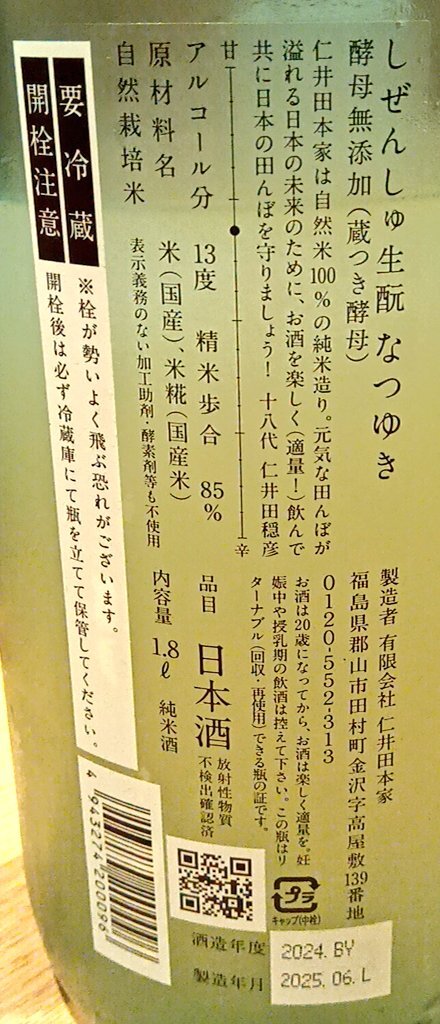 しぜんしゅ生酛 なつゆき
酵母無添加(蔵つき酵母)
仁井田本家は自然米100%の純米造り。元気な田んぼが
溢れる日本の未来のために、お酒を楽しく(適量!)飲んで
共に日本の田んぼを守りましょう! 十八代 仁井田穏彦
甘 辛
アルコール分 13度 精米歩合 85%
原材料名 米(国産)、米糀(国産米)
表示義務のない加工助剤・酵素剤等も不使用
自然栽培米
要冷蔵
開栓注意
※栓が勢いよく飛ぶ恐れがございます。
開栓後は必ず冷蔵庫にて瓶を立てて保管してください。
製造者 有限会社 仁井田本家
福島県郡山市田村町金沢字高屋敷139番地
0120-552-313
お酒は20歳になってから、お酒は楽しく適量を。妊
娠中や授乳期の飲酒は控えて下さい。この瓶はリ
ターナブル(回収・再使用)できる瓶の証です。
品目 日本酒
放射性物質
不検出確認済
内容量 1.8ℓ 純米酒
4 943274 200096
プラ
キャップ(中栓)
酒造年度 2024. BY
製造年月 2025. 06. L